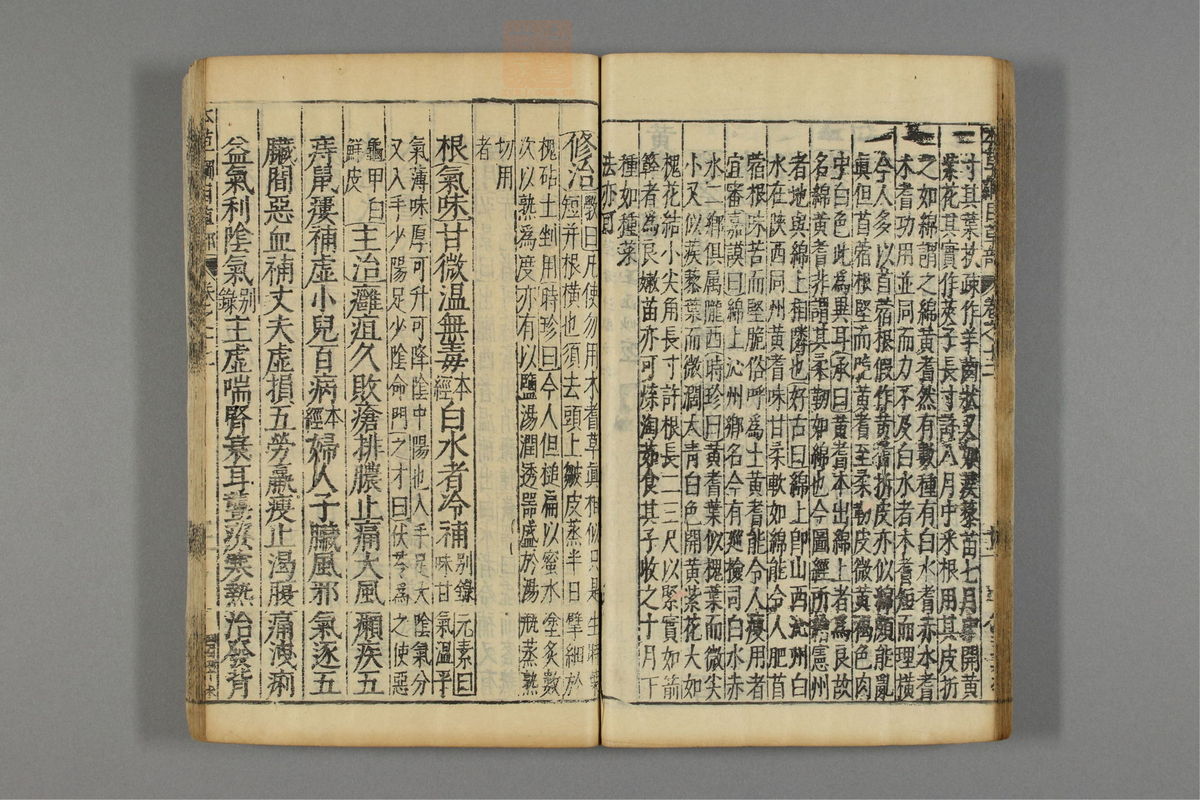 寸其葉扶疎作羊齒狀又如蒺藜苗七月中開黃
紫花其實作莢子長寸許八月中采根用其皮折
之如綿謂之綿黃耆然有數種有白水耆赤水耆
木耆功用並同而力不及白水者木耆短而理橫
今人多以苜蓿根假作黃耆折皮亦似綿頗能亂
真但苜蓿根堅而脆黃耆至柔韌皮微黃褐色肉
中白色此為異耳承曰黃耆本出綿上者為良故
名綿黃耆非謂其柔韌如綿也今圖經所繪憲州
者地與綿上相隣也好古曰綿上即山西沁州白
水在陝西同州黃耆味甘柔軟如綿能令人肥苜
蓿根味苦而堅脆俗呼為土黃耆能令人瘦用者
宜審嘉謨曰綿上沁州鄉名今有廵檢司白水赤
水鄉俱属隴西時珍曰黃耆葉似槐葉而微尖
小又似蒺藜葉而微濶大青白色開黃紫花大如
槐花結小尖角長寸許根長二三尺以緊實如箭
簳者為良嫩苗亦可煠淘茹食其子收之十月下
種如種菜
法亦可
修治斆曰凡使勿用木耆草真相似只是生時葉
短并根橫也須去頭上皺皮蒸半日擘細於
槐砧上剉用時珍曰今人但槌扁以蜜水塗炙數
次以熟為度亦有以鹽湯潤透器盛於湯瓶蒸熟
切用
者
根氣味甘微温無毒本經白水者冷補別錄元素曰味甘氣温平
氣薄味厚可升可降陰中陽也入手足太陰氣分
又入手少陽足少陰命門之才曰伏苓為之使惡
龜甲白
鮮皮主治癰疽久敗瘡排膿止痛大風癩疾五
痔鼠瘻補虛小兒百病本經婦人子臟風邪氣逐五
臟間惡血補丈夫虛損五勞羸瘦止渴腹痛洩痢
益氣利陰氣別錄主虛喘腎衰耳聾療寒熱治發背